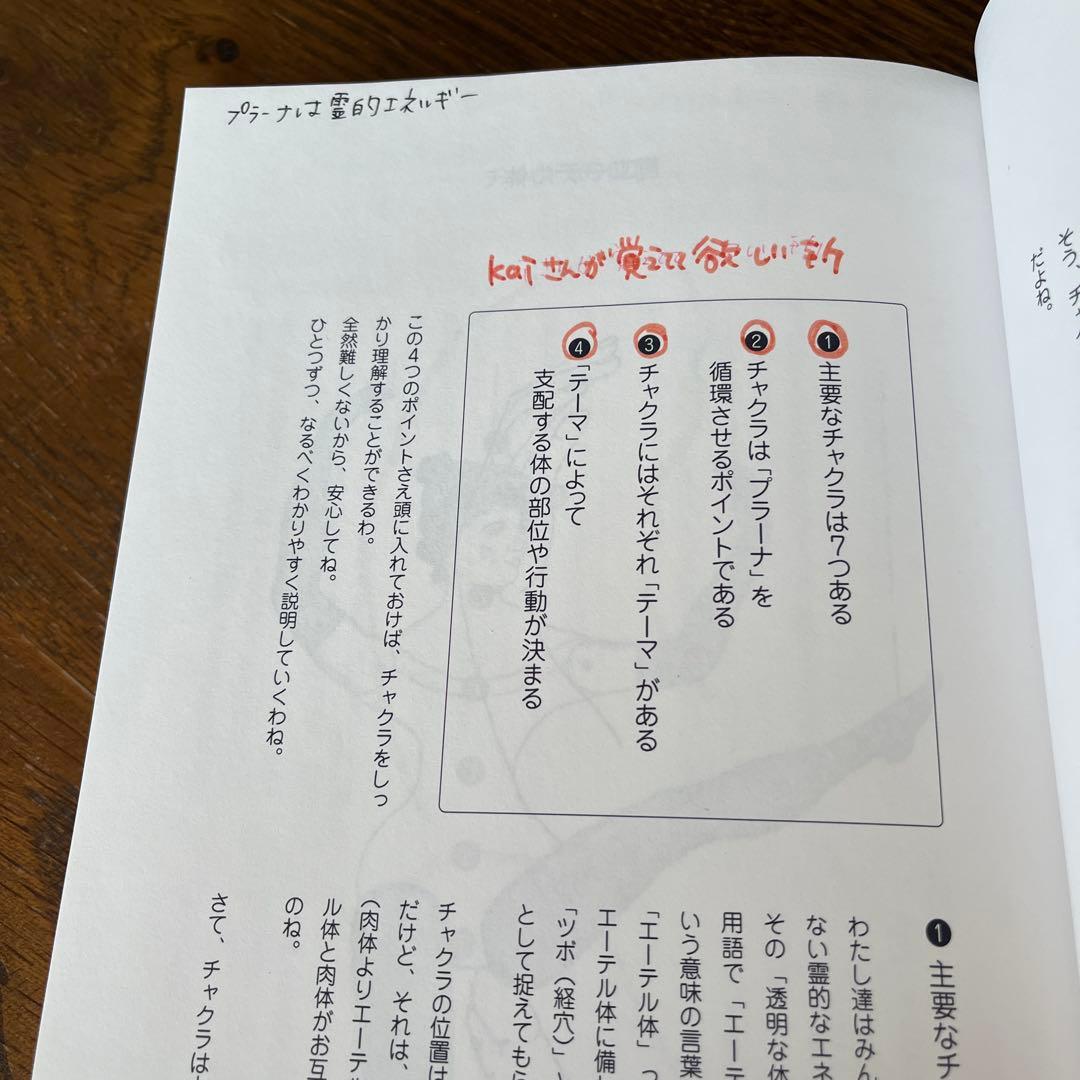 プラーナは霊的エネルギー
kaiさんが覚えてて欲しい
❶ 主要なチャクラは7つある
❷ チャクラは「プラーナ」を
循環させるポイントである
❸ チャクラにはそれぞれ「テーマ」がある
❹ 「テーマ」によって
支配する体の部位や行動が決まる
この4つのポイントさえ頭に入れておけば、チャクラをしっ
かり理解することができるわ。
全然難しくないから、安心してね。
ひとつずつ、なるべくわかりやすく説明していくわね。
❶ 主要なチ
わたし達はみん
ない霊的なエネ
その「透明な体
用語で「エーテ
いう意味の言葉
「エーテル体」つ
エーテル体に備
「ツボ（経穴）」
として捉えてもら
チャクラの位置は
だけど、それは、
（肉体よりエーテル
ル体と肉体がお互
のね。
さて、チャクラは
そう、チャ
だよね。